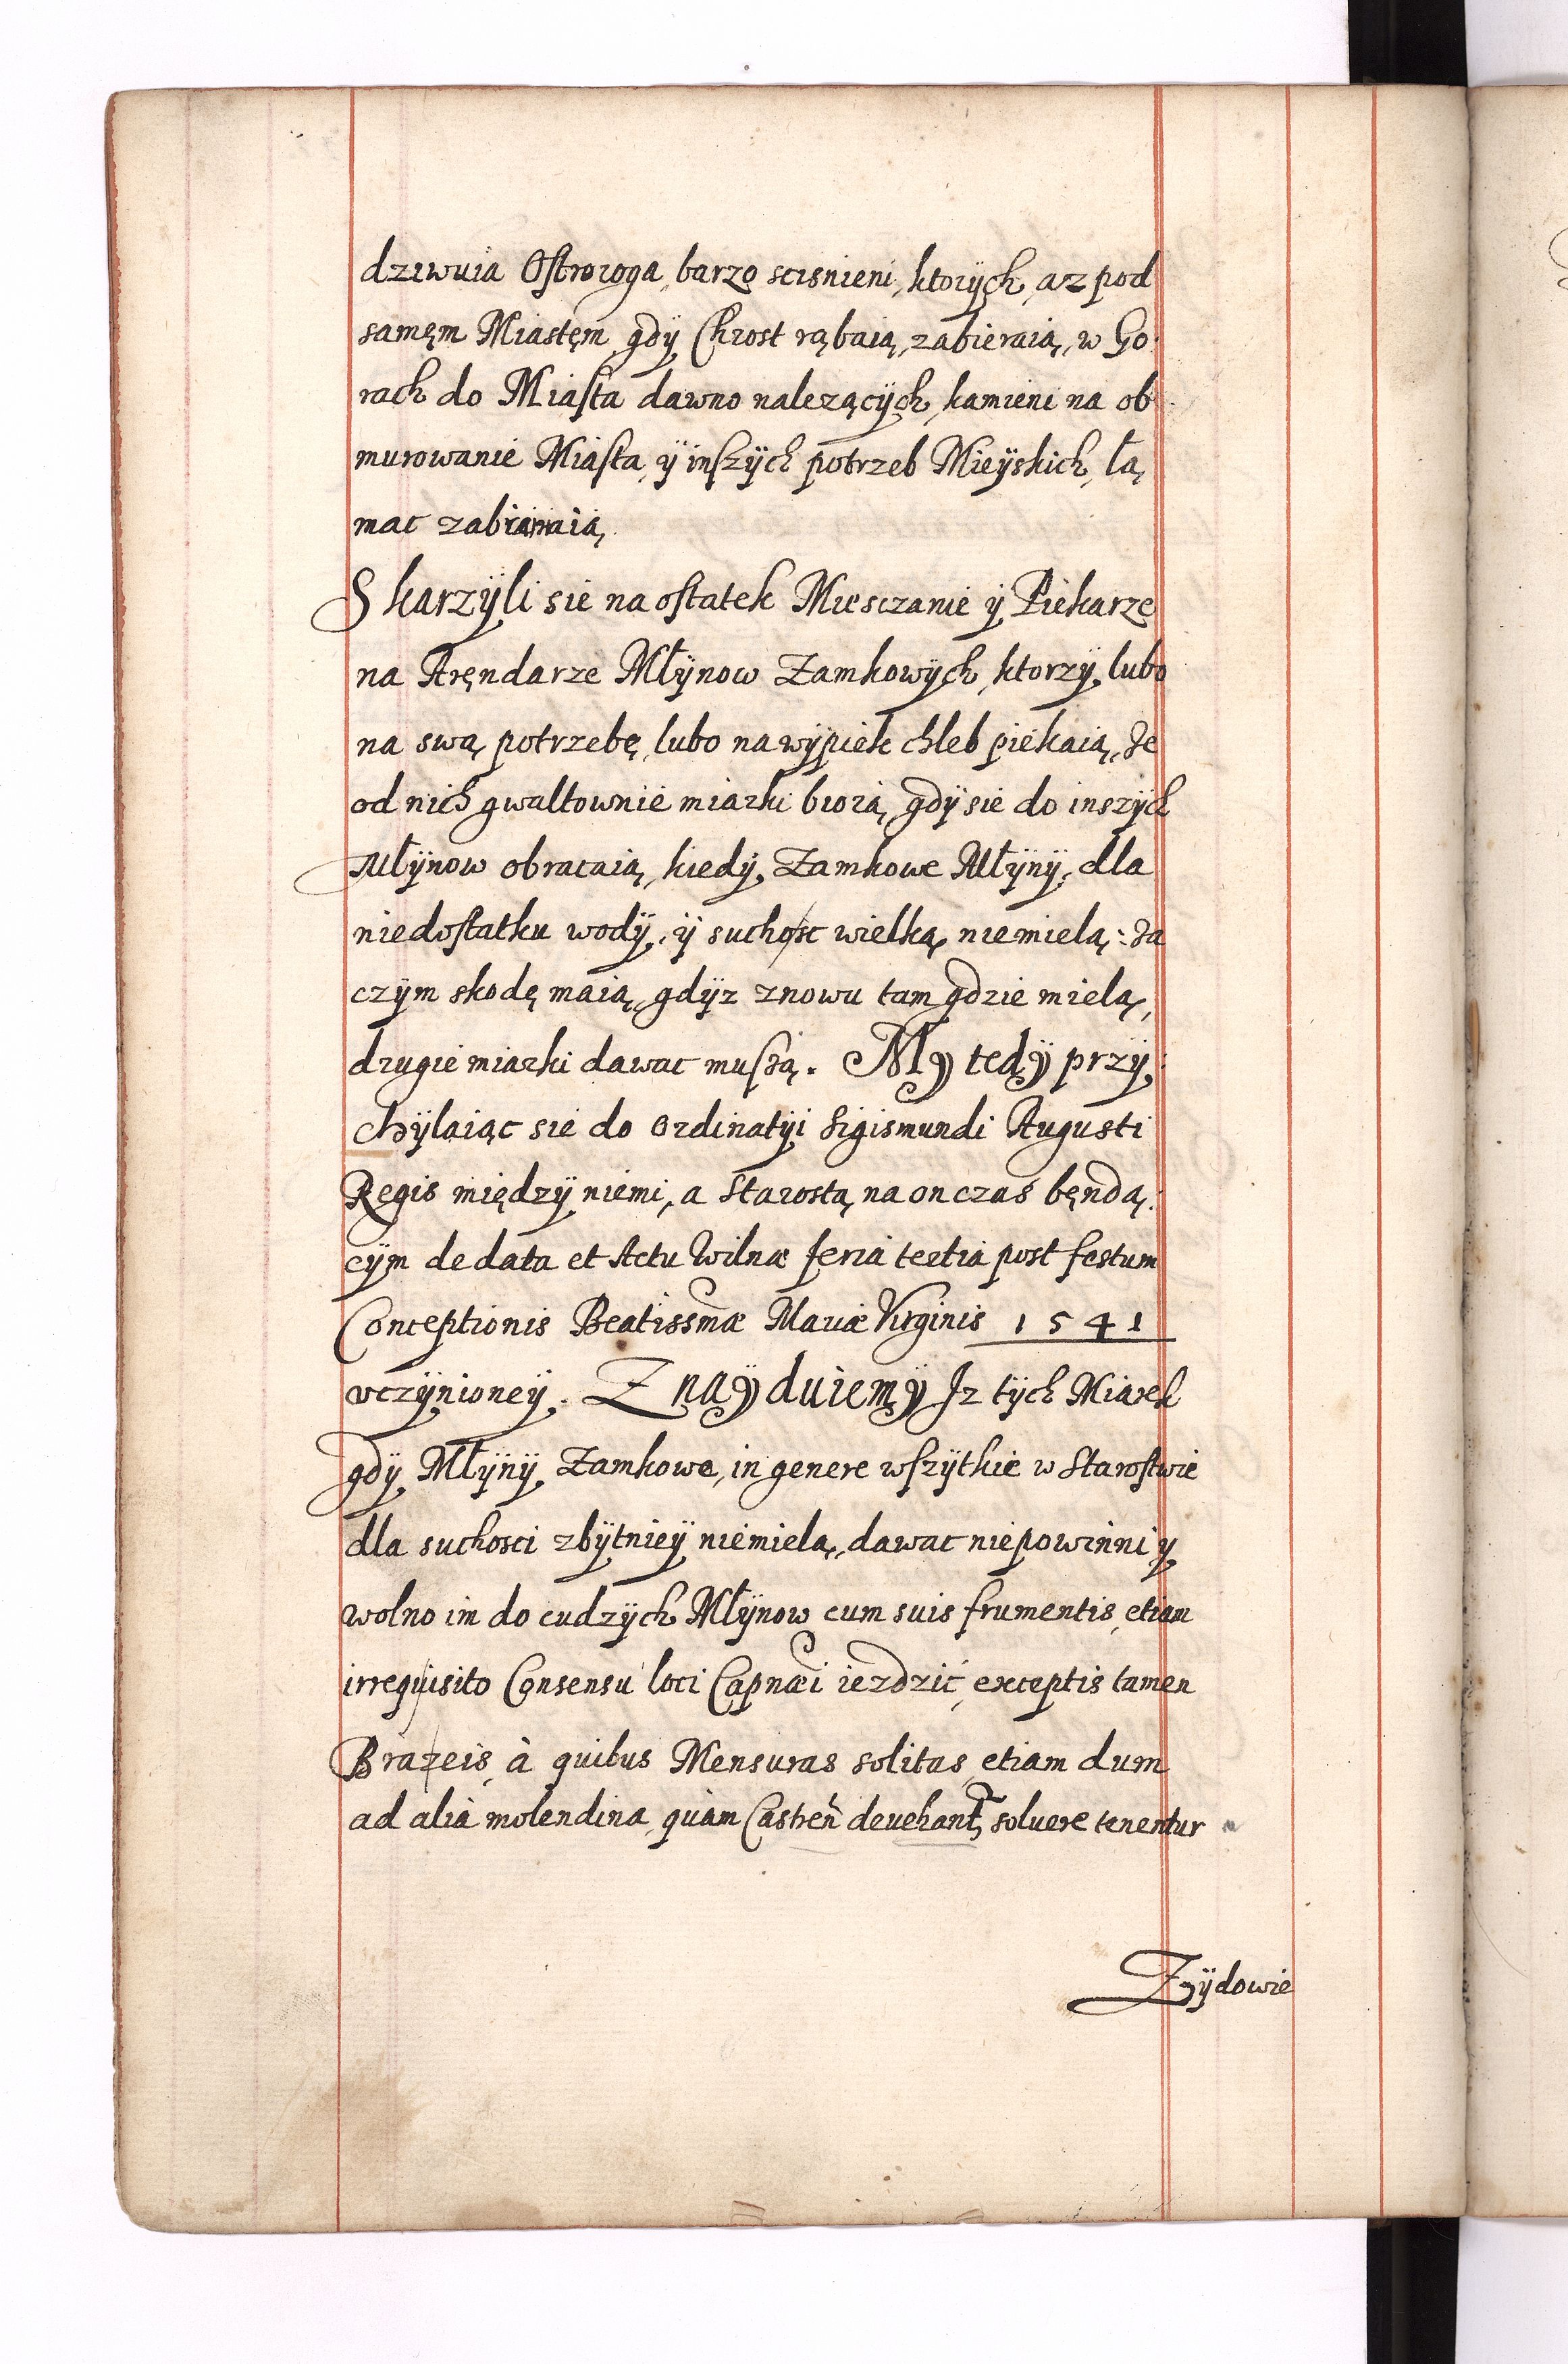 dziwuia Ostroroga, barzo scisnieni, ktorÿch, az pod
samęm Miastęm gdÿ Chrost rąbaią, zabieraią, w Go:
rach do Miasta dawno nalezącÿch, kamieni na ob:
murowanie Miasta, ÿ inszÿch potrzeb Mieÿskich, łą,
mac zabraniaią.
Skarzÿli sie na ostatek Miesczanie ÿ Piekarze
na Aręndarze Młÿnow Zamkowÿch, ktorzÿ, lubo
na swą potrzebę, lubo na wÿpiek chleb piekaią, Ze
od nich gwałtownie miarki biorą, gdÿ sie do inszÿch
Młÿnow obracaią, kiedÿ Zamkowe Młÿnÿ, dla
niedostatku wodÿ, ÿ suchosc wielką niemielą: Za
czÿm skodę maią, gdÿz znowu tam gdzie mielą,
drugie miarki dawac muszą. My tedÿ przÿ:
chÿlaiąc sie do Ordinatÿi Sigismundi Augusti
Regis międzÿ niemi, a Starostą na on czas bęndą:
cÿm de data et Actu Wilnæ feria tertia post festum
Conceptionis Beatissmæ Mariæ Virginis 1541
vczÿnioneÿ. Znaÿduiemÿ Jz tÿch Miarek
gdÿ Młÿnÿ Zamkowe, in genere wszÿtkie w Starostwie
dla suchosci zbÿtnieÿ niemielą, dawac niepowinni y
wolno im do cudzÿch Młÿnow cum suis frumentis, etiam
irrequisito Consensu loci Capnæi iezdzić, exceptis tamen
Brazeis, à quibus Mensuras solitas, etiam dum
ad alia molendina, quàm Castreñ devehant, soluere tenentur
Zÿdowie